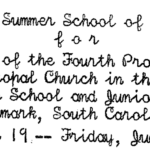 Summer School of
for
of the Fourth Pro
opal Church in the
School and Junio
mark, South Carol
19. -- Friday, Ju